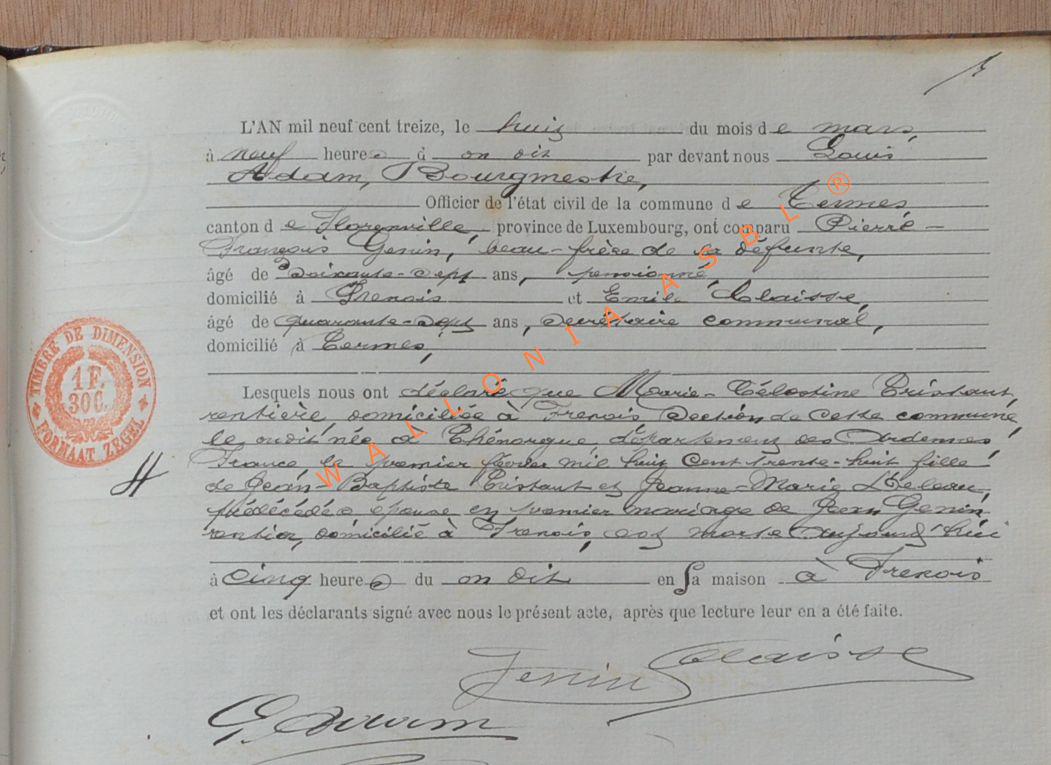 L'AN mil neuf cent treize, le huit du mois de mars,
à neuf heures d on dit par devant nous Louis
Adam, Bourgmestre,
Officier de l'état civil de la commune de Termes
canton de Florenville, province de Luxembourg, ont comparu Pierre-
François Genin, beau-frère de la défunte,
âgé de Soixante-sept ans, pensionné,
domicilié à Frenois et Emile Claisse,
âgé de quarante-sept ans, secrétaire communal,
domicilié à Termes,
Lesquels nous ont déclaré que Marie-Célestine Tristant,
rentière, domiciliée à Frenois Section de cette commune,
le on dit, née à Thénorgue département des Ardennes,
France, le premier février mil huit cent trente-huit fille
de Jean-Baptiste Tristant et Jeanne-Marie
prédécédés épouse en premier mariage de Jean Genin
rentier, domicilié à Frenois, est morte aujourd'hui
à cinq heures du on dit en sa maison à Frenois
et ont les déclarants signé avec nous le présent acte, après que lecture leur en a été faite.
Genin Claisse
TIMBRE DE DIMENSION
1 F.
30 C.
FORMAAT ZEGEL
WALLONIA ASBL ®